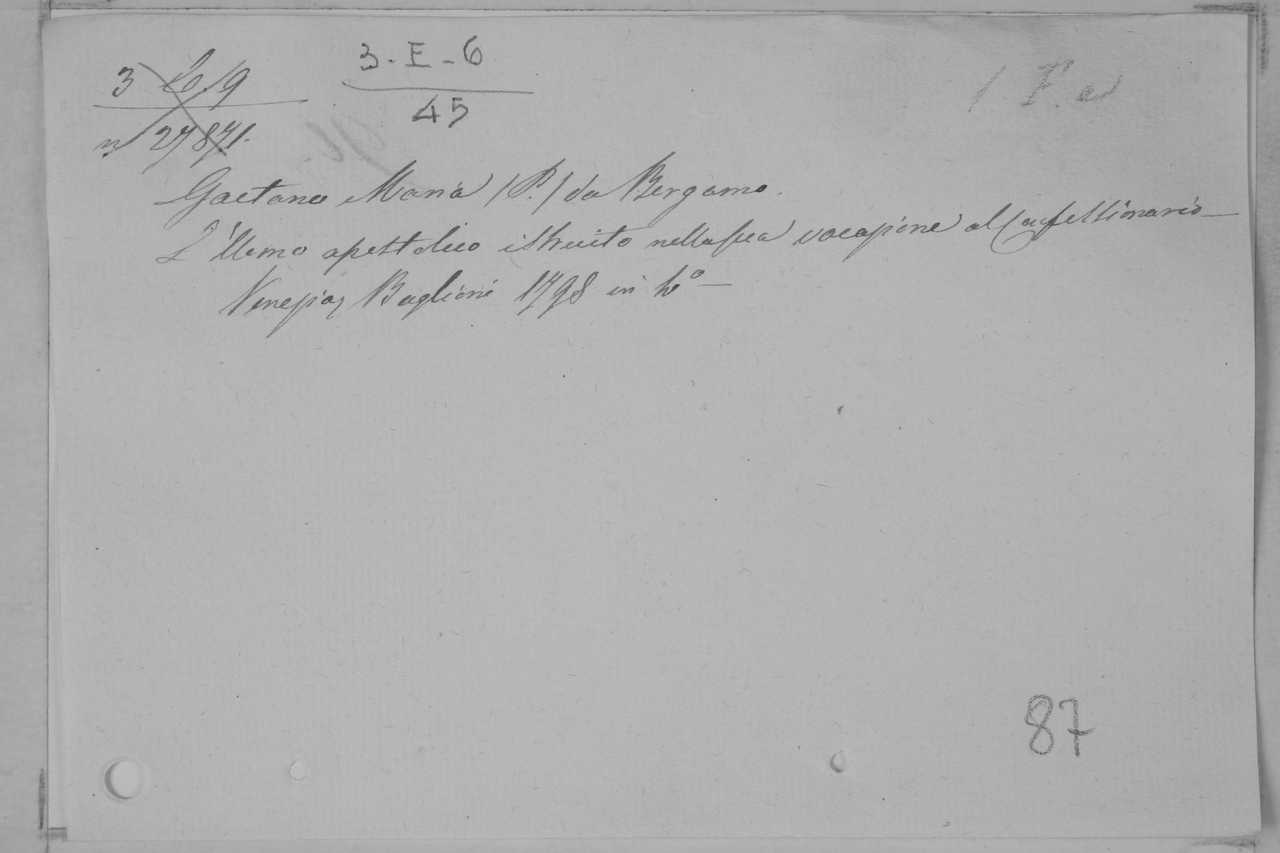 3 C 19
n 27871.
3-E-6
45
Gaetano Maria (P.) da Bergamo.
L'Uomo apostolico istruito nella sua vocazione al Confessionario—
Venezia, Baglioni 1798 in 4°—
87